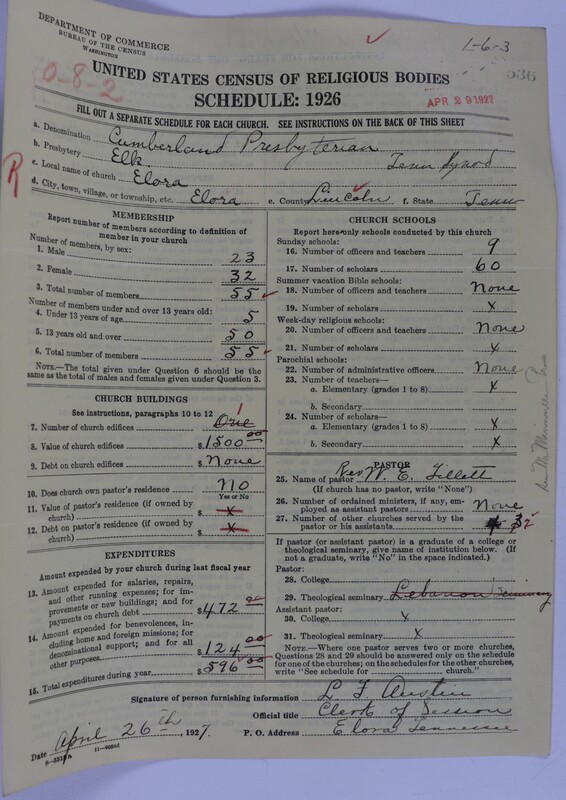 DEPARTMENT OF COMMERCE
BUREAU OF THE CENSUS
WASHINGTON
1-6-3
0-8-2
536
UNITED STATES CENSUS OF RELIGIOUS BODIES
SCHEDULE: 1926
APR 29 1927
FILL OUT A SEPARATE SCHEDULE FOR EACH CHURCH. SEE INSTRUCTIONS ON THE BACK OF THIS SHEET
a. Denomination Cumberland Presbyterian
b. Presbytery Elk Tenn Synod
R
c. Local name of church Elora
d. City, town, village, or township, etc. Elora e. County Lincoln f. State Tenn
MEMBERSHIP
Report number of members according to definition of
member in your church
Number of members, by sex:
1. Male 23
2. Female 32
3. Total number of members 55
Number of members under and over 13 years old:
4. Under 13 years of age 5
5. 13 years old and over 50
6. Total number of members 55
NOTE.—The total given under Question 6 should be the
same as the total of males and females given under Question 3.
CHURCH BUILDINGS
See instructions, paragraphs 10 to 12
1
7. Number of church edifices One
8. Value of church edifices $1500 00
9. Debt on church edifices $ None
10. Does church own pastor's residence NO
Yes or No
11. Value of pastor's residence (if owned by
church) $ x
12. Debt on pastor's residence (if owned by
church) $ x
EXPENDITURES
Amount expended by your church during last fiscal year
13. Amount expended for salaries, repairs,
and other running expenses; for im-
provements or new buildings; and for
payments on church debt $472 00
14. Amount expended for benevolences, in-
cluding home and foreign missions; for
denominational support; and for all
other purposes $124 00
15. Total expenditures during year $596 00
CHURCH SCHOOLS
Report here only schools conducted by this church
Sunday schools:
16. Number of officers and teachers 9
17. Number of scholars 60
Summer vacation Bible schools:
18. Number of officers and teachers None
19. Number of scholars x
Week-day religious schools:
20. Number of officers and teachers None
21. Number of scholars x
Parochial schools:
22. Number of administrative officers None
23. Number of teachers—
a. Elementary (grades 1 to 8) x
b. Secondary
24. Number of scholars—
a. Elementary (grades 1 to 8) x
b. Secondary x
PASTOR
25. Name of pastor Rev W. E. Tillett
(If church has no pastor, write "None")
26. Number of ordained ministers, if any, em-
ployed as assistant pastors None
27. Number of other churches served by the
pastor or his assistants 3 2
If pastor (or assistant pastor) is a graduate of a college or
theological seminary, give name of institution below. (If
not a graduate, write "No" in the space indicated.)
Pastor:
28. College
29. Theological seminary Lebanon Seminary
Assistant pastor:
30. College x
31. Theological seminary x
NOTE.—Where one pastor serves two or more churches,
Questions 28 and 29 should be answered only on the schedule
for one of the churches; on the schedules for the other churches,
write "See schedule for church."
Signature of person furnishing information L. F. Austin
Official title Clerk of Session
Date April 26th, 1927. P. O. Address Elora Tennessee